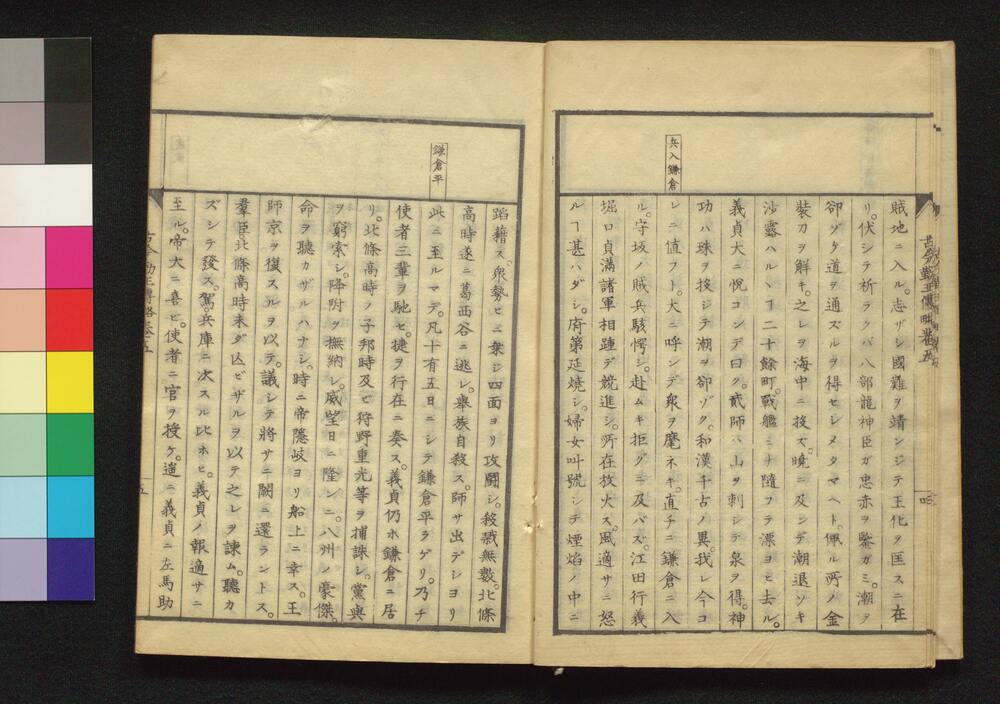 兵入鎌倉
賊地ニ入ル。志ザシ國難ヲ靖ンジテ王化ヲ匡スニ在
リ。伏シテ祈ラクバ八部龍神臣ガ忠赤ヲ鑒ガミ。潮ヲ
卻ゾケ道ヲ通ズルヲ得セシメタマヘト。佩ル所ノ金
裝刀ヲ解キ。之レヲ海中ニ投ズ。曉ニ及ンデ潮退ゾキ
沙露ハルヽヿ二十餘町。戰艦ミナ隨フテ漂ヨヒ去ル。
義貞大ニ悅コンデ曰ク。貳師ハ山ヲ刺シテ泉ヲ得。神
功ハ珠ヲ投ジテ潮ヲ卻ゾク。和漢千古ノ異。我レ今コ
レニ値フト。大ニ呼ンデ衆ヲ麾ネキ。直チニ鎌倉ニ入
ル。守坂ノ賊兵駭愕シ。赴ムキ拒グニ及バズ。江田行義
堀口貞滿諸軍相踵デ競進シ。所在放火ス。風適サニ怒
ルヿ甚ハダシ。府第延燒シ。婦女叫號シテ煙焰ノ中ニ
鎌倉平
蹈藉ス。衆勢ヒニ乗ジ四面ヨリ攻鬪シ。殺戮無數。北條
高時遂ニ葛西谷ニ逃レ。舉族自殺ス。師サ出デシヨリ
此ニ至ルマデ。凡十有五日ニシテ鎌倉平ラゲリ。乃チ
使者三輩ヲ馳セ。捷ヲ行在ニ奏ス。義貞仍ホ鎌倉ニ居
リ。北條高時ノ子邦時及ヒ狩野重光等ヲ捕誅シ。黨與
ヲ窮索シ。降附ヲ撫納シ。威望日ニ隆ンニ。八州ノ豪傑。
命ヲ聽カザルハナシ。時ニ帝隱岐ヨリ船上ニ幸ス。王
師京ヲ復スルヲ以テ。議シテ將サニ闕ニ還ラントス。
羣臣北條高時未ダ亾ビザルヲ以テ之レヲ諫ム。聽カ
ズシテ發ス。駕兵庫ニ次スル比ホヒ。義貞ノ報適サニ
至ル。帝大ニ喜ビ。使者ニ官ヲ授ケ。遥ニ義貞ニ左馬助
五